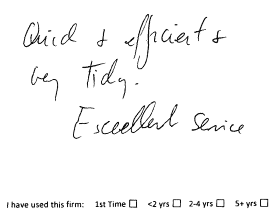 Quick & efficient &
very Tidy.
Excellent Service
I have used this firm: 1st Time ☐ <2 yrs ☐ 2-4 yrs ☐ 5+ yrs ☐